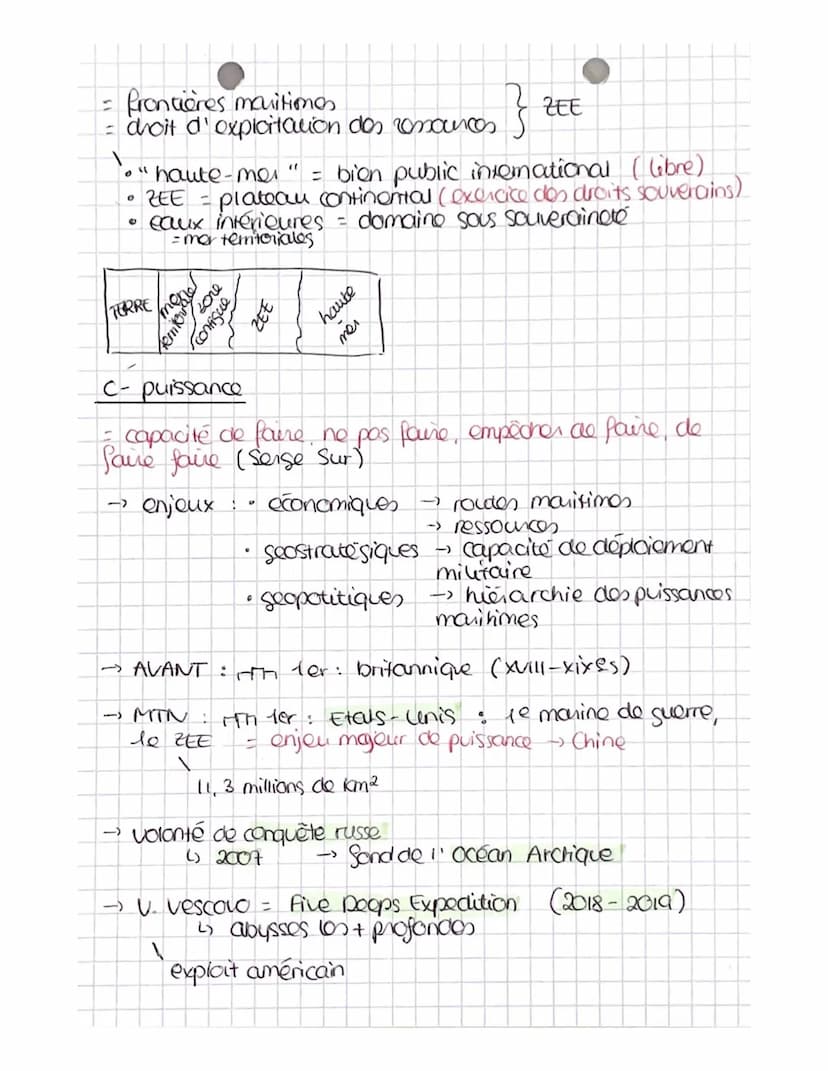 = frontières maritimes
= droit d'exploitation des ressources } ZEE
• "haute-mer" = bien public international (libre)
• ZEE = plateau continental (exercice des droits souverains)
• eaux intérieures = domaine sous souveraineté
= mer territoriales
TERRE mer territoriale zone contigue ZEE haute mer
C- puissance
= capacité de faire, ne pas faire, empêcher de faire, de
faire faire (Serge Sur)
→ enjeux : • économiques → routes maritimes
→ ressources
• géostratégiques → capacité de déploiement
militaire
• géopolitiques → hiérarchie des puissances
maritimes
→ AVANT : 1er : britannique (XVIII-XIXes)
→ MTN : 1er : Etats-Unis : 1e marine de guerre,
1e ZEE = enjeu majeur de puissance → Chine
11,3 millions de km²
→ volonté de conquête russe
↳ 2007 → fond de l'Océan Arctique
→ V. Vescovo = Five Deeps Expedition (2018-2019)
↳ abysses les + profondes
exploit américain